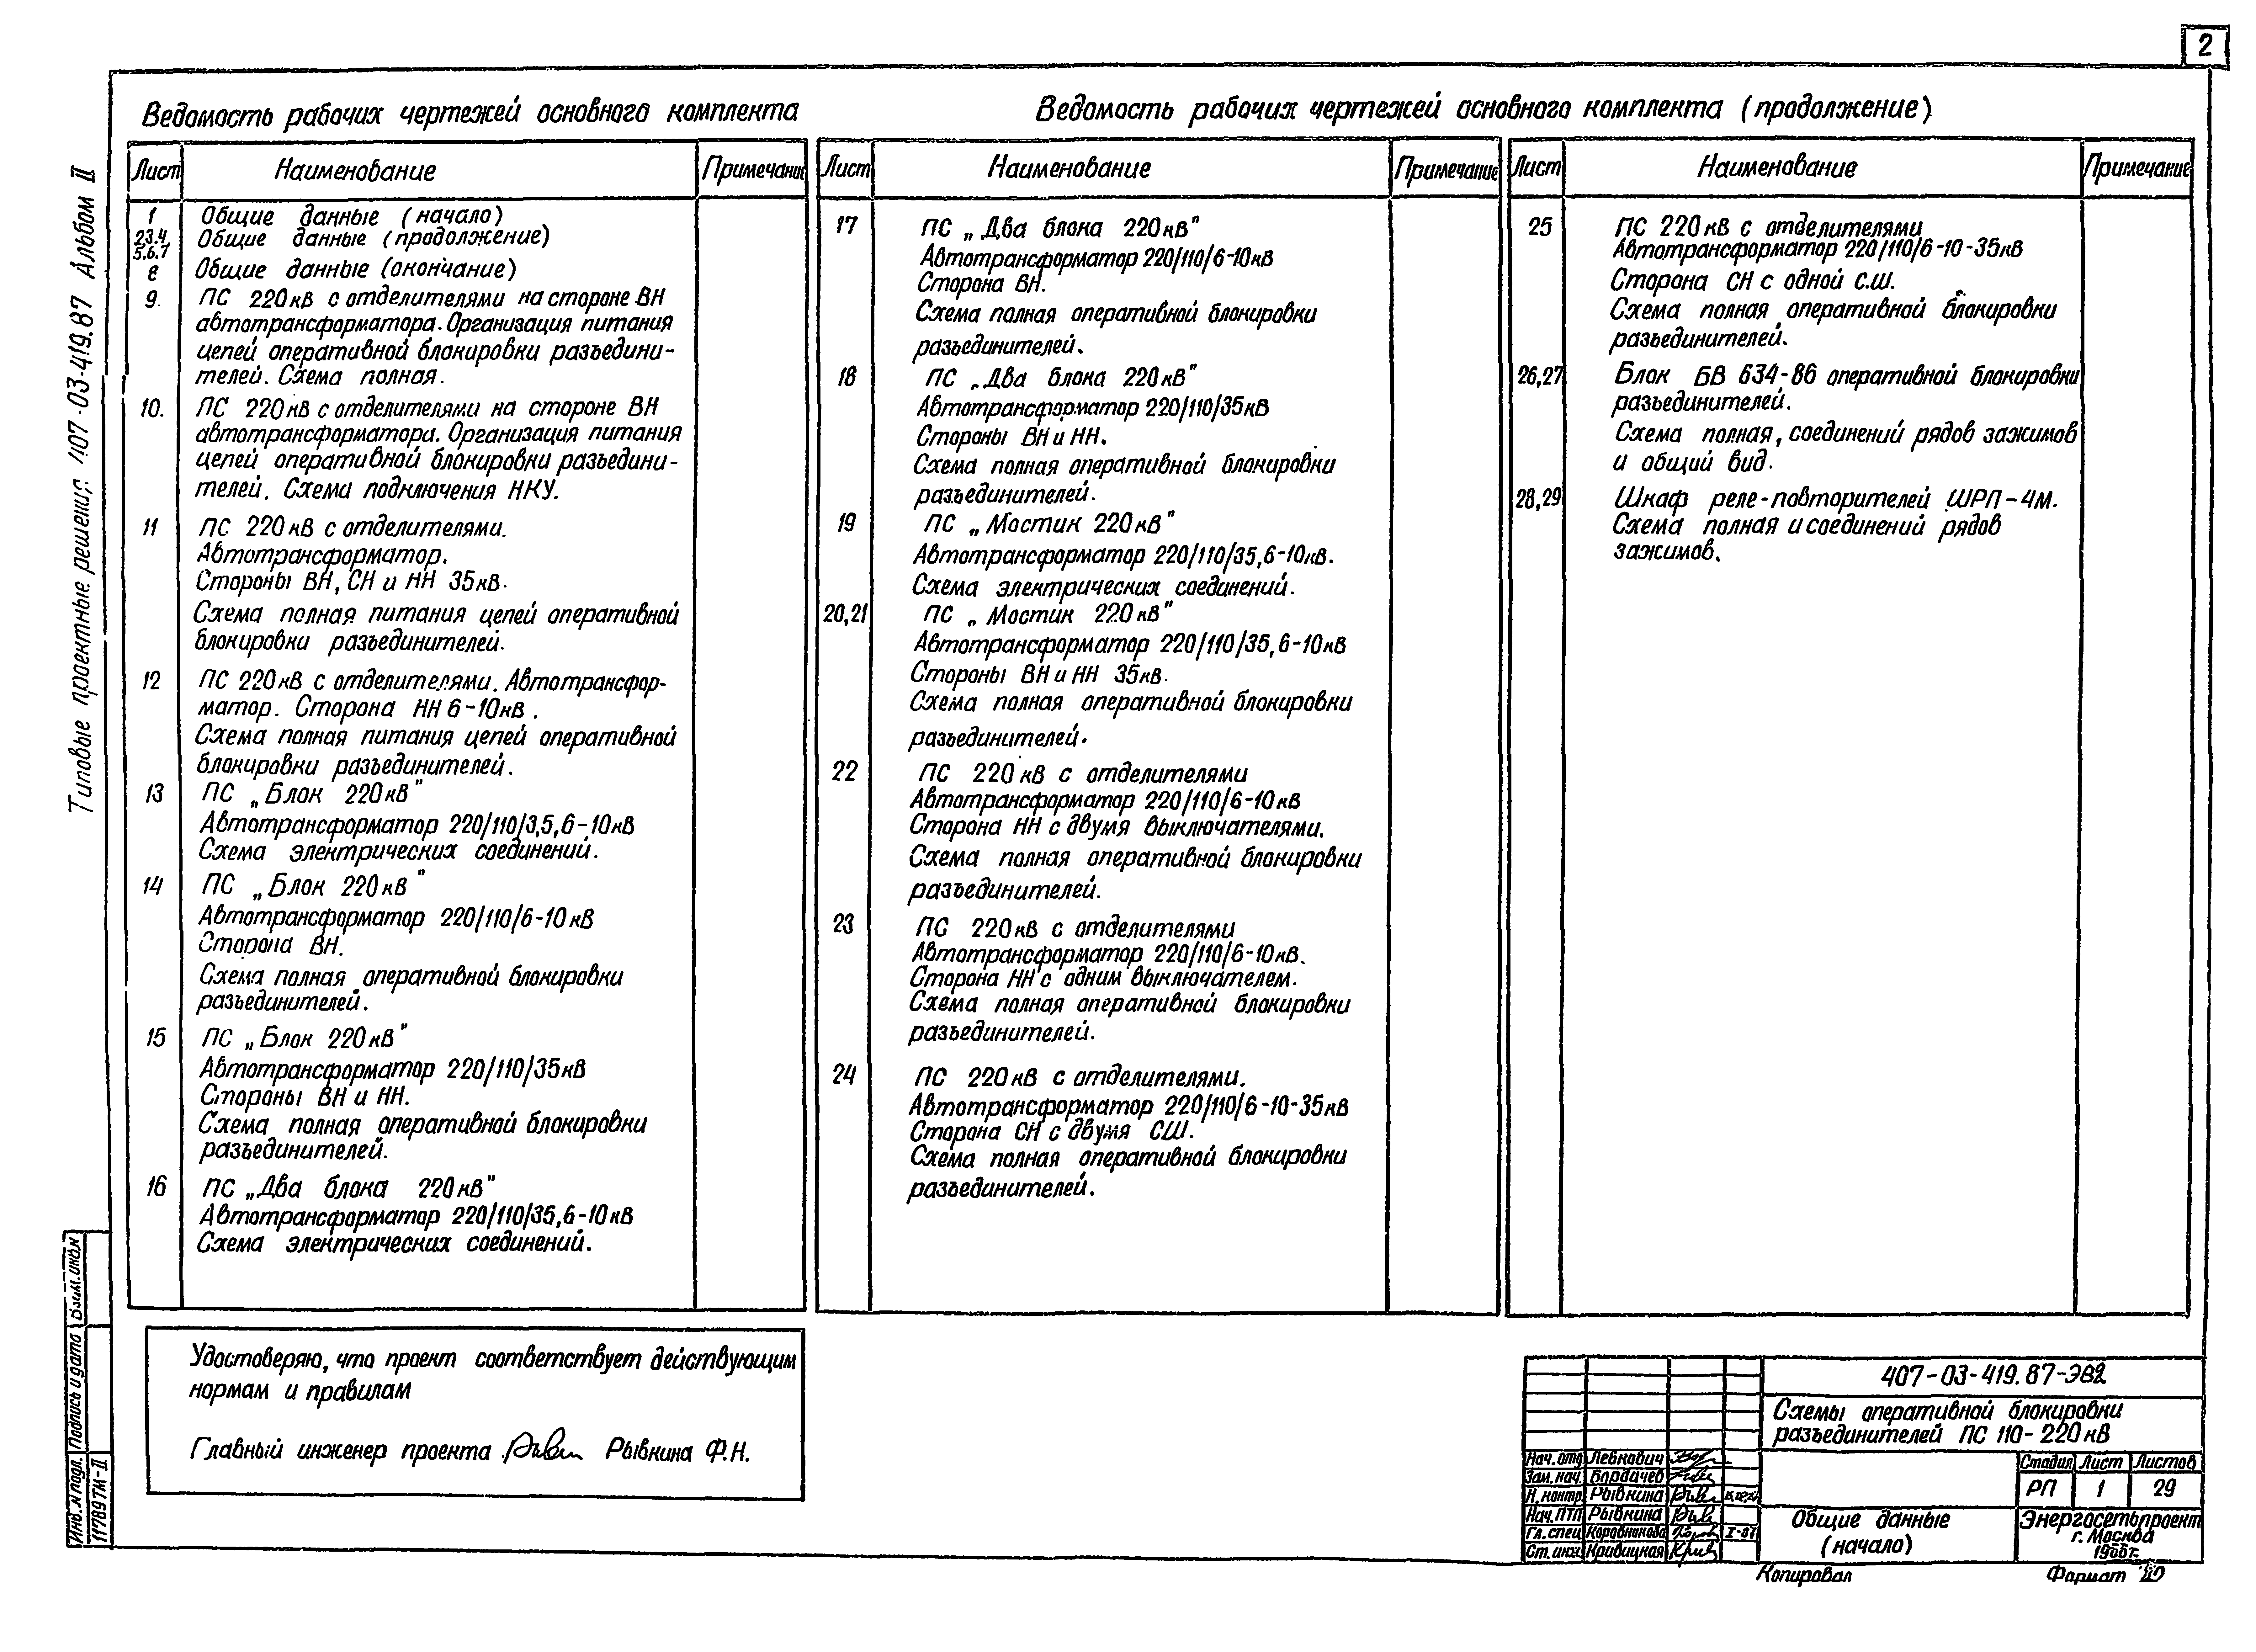 2
Ведомость рабочих чертежей основного комплекта
Лист Наименование Примечание
1 Общие данные (начало)
2.3.4 5.6.7 Общие данные (продолжение)
8 Общие данные (окончание)
9. ПС 220кВ с отделителями на стороне ВН
автотрансформатора. Организация питания
цепей оперативной блокировки разъедини-
телей. Схема полная.
10. ПС 220кВ с отделителями на стороне ВН
автотрансформатора. Организация питания
цепей оперативной блокировки разъедини-
телей. Схема подключения НКУ.
11 ПС 220кВ с отделителями.
Автотрансформатор.
Стороны ВН, СН и НН 35кВ.
Схема полная питания цепей оперативной
блокировки разъединителей.
12 ПС 220кВ с отделителями. Автотрансфор-
матор. Сторона НН 6-10кВ.
Схема полная питания цепей оперативной
блокировки разъединителей.
13 ПС „Блок 220кВ"
Автотрансформатор 220/110/3,5,6-10кВ
Схема электрических соединений.
14 ПС „Блок 220кВ"
Автотрансформатор 220/110/6-10кВ
Сторона ВН.
Схема полная оперативной блокировки
разъединителей.
15 ПС „Блок 220кВ"
Автотрансформатор 220/110/35кВ
Стороны ВН и НН.
Схема полная оперативной блокировки
разъединителей.
16 ПС „Два блока 220кВ"
Автотрансформатор 220/110/35,6-10кВ
Схема электрических соединений.
Ведомость рабочих чертежей основного комплекта (продолжение)
Лист Наименование Примечание
17 ПС „Два блока 220кВ"
Автотрансформатор 220/110/6-10кВ
Сторона ВН.
Схема полная оперативной блокировки
разъединителей.
18 ПС „Два блока 220кВ"
Автотрансформатор 220/110/35кВ
Стороны ВН и НН.
Схема полная оперативной блокировки
разъединителей.
19 ПС „Мостик 220кВ"
Автотрансформатор 220/110/35,6-10кВ.
Схема электрических соединений.
20,21 ПС „Мостик 220кВ"
Автотрансформатор 220/110/35,6-10кВ
Стороны ВН и НН 35кВ.
Схема полная оперативной блокировки
разъединителей.
22 ПС 220кВ с отделителями
Автотрансформатор 220/110/6-10кВ
Сторона НН с двумя выключателями.
Схема полная оперативной блокировки
разъединителей.
23 ПС 220кВ с отделителями
Автотрансформатор 220/110/6-10кВ.
Сторона НН с одним выключателем.
Схема полная оперативной блокировки
разъединителей.
24 ПС 220кВ с отделителями.
Автотрансформатор 220/110/6-10-35кВ
Сторона СН с двумя СШ.
Схема полная оперативной блокировки
разъединителей.
Лист Наименование Примечание
25 ПС 220кВ с отделителями
Автотрансформатор 220/110/6-10-35кВ
Сторона СН с одной с.ш.
Схема полная оперативной блокировки
разъединителей.
26,27 Блок БВ 634-86 оперативной блокировки
разъединителей.
Схема полная, соединений рядов зажимов
и общий вид.
28,29 Шкаф реле-повторителей ШРП-4М.
Схема полная и соединений рядов
зажимов.
Типовые проектные решения 407-03-419.87 Альбом II
Взам.инв.№
Подпись и дата
Инв.№подл.
11789ТМ-II
Удостоверяю, что проект соответствует действующим
нормам и правилам
Главный инженер проекта Рывкина Ф.Н.
407-03-419.87-ЭВ2
Схемы оперативной блокировки
разъединителей ПС 110-220кВ
Нач.отд Левкович
Зам.нач. Бордачев
Н.контр Рывкина
Нач.ПТП Рывкина
Гл.спец Коровникова I-87
Ст.инж. Кривицкая
Стадия Лист Листов
РП 1 29
Общие данные
(начало)
Энергосетьпроект
г.Москва
Копировал Формат